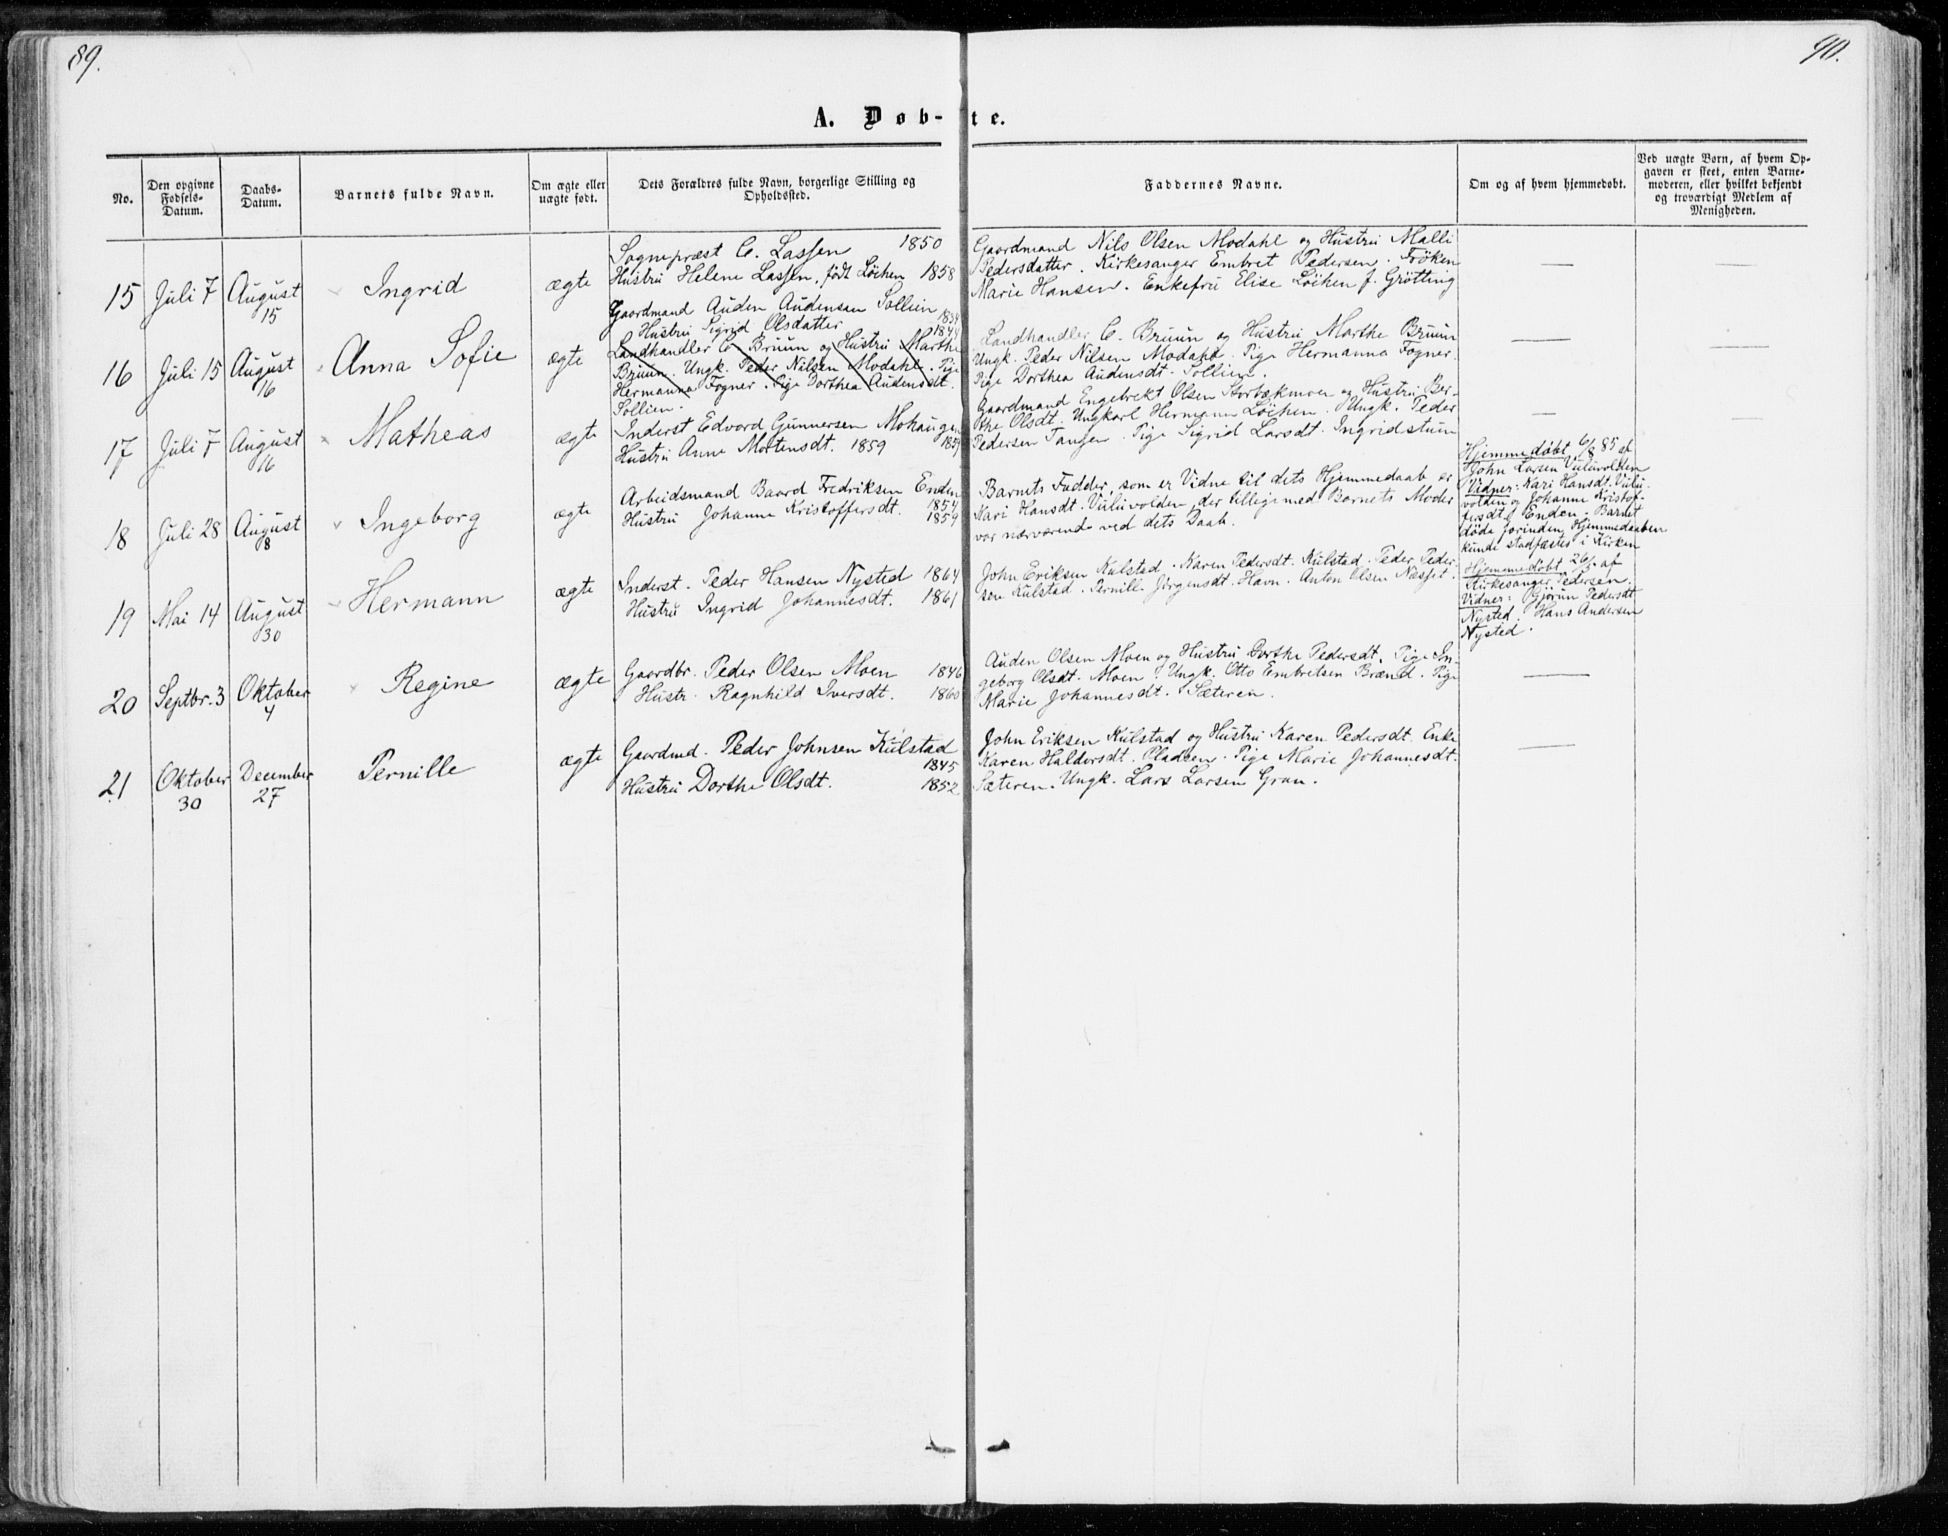 89.
90.
A. Døb-
te.
No.
Den opgivne
Fødsels-
Datum.
Daabs-
Datum.
Barnets fulde Navn.
Om ægte eller
uægte født.
Dets Forældres fulde Navn, borgerlige Stilling og
Opholdssted.
Faddernes Navne.
Om og af hvem hjemmedøbt.
Ved uægte Børn, af hvem Op-
gaven er skeet, enten Barne-
moderen, eller hvilket bekjendt
og troværdigt Medlem af
Menigheden.
15
Juli 7
August
15
Ingrid
ægte
Sognepræst C. Lassen 1850
Hustru Helene Lassen, født Løchen 1858
Gaardmand Nils Olsen Modahl og Hustru Malli
Pedersdatter. Kirkesanger Embret Pedersen. Frøken
Marie Hansen. Enkefru Elise Løchen f. Grøtting
16
Juli 15
August
16
Anna Sofie
ægte
Gaardmand Auden Audensen Sollien
1834
Hustru Sigrid Olsdatter 1844
Landhandler C. Bruun og Hustru Marthe
Bruun. Ungk. Peder Nilsen Modahl. Pige
Hermanna Fogner. Pige Dorthea Audensdt.
Sollien.
Landhandler C. Bruun og Hustru Marthe Bruun
Ungk. Peder Nilsen Modahl. Pige Hermanna Fogner.
Pige Dorthea Audensdt. Sollien.
17
Juli 7
August
16
Matheas
ægte
Inderst Edvard Gunnersen Mohaugen
Hustru Anne Mortensdt. 1859
Gaardmand Engebrekt Olsen Storbækmoen og Hustru Ber-
the Olsdt. Ungkarl Hermann Løchen. Ungk. Peder
Pedersen Tangen. Pige Sigrid Larsdt. Ingridstuen
18
Juli 28
August
8
Ingeborg
ægte
Arbeidsmand Baard Fredriksen Enden
1854
Hustru Johanne Kristoffersdt. 1859
Barnets Fadder, som er Vidne til dets Hjemmedaab er
Kari Hansdt. Vuluvolden, der tilligemed Barnets Moder
var nærværende ved dets Daab.
Hjemmedøbt 6/8 85 af
John Larsen Vuluvolden
Vidner: Kari Hansdt. Vulu-
volden og Johanne Kristof-
fersdt. Enden. Barnet
døde forinden Hjemmedaaben
kunde stadfæstes i Kirken
19
Mai 14
August
30
Hermann
ægte
Inderst. Peder Hansen Nysted 1864
Hustru Ingrid Johannesdt. 1861
John Eriksen Kulstad. Karen Pedersdt. Kulstad. Peder Peder-
sen Kulstad. Pernille Jørgensdt. Havn. Anton Olsen Næsset.
Hjemmedøbt af
Kirkesanger Pedersen.
Vidner: Gjørun Pedersdt
Nysted. Hans Andersen
Nysted.
20
Septbr. 3
Oktober
4
Regine
ægte
Gaardbr. Peder Olsen Moen 1846
Hustr. Ragnhild Iversdt. 1860
Auden Olsen Moen og Hustru Dorthe Pedersdt. Pige In-
geborg Olsdt. Moen. Ungk. Otto Embretsen Brænd. Pige
Marie Johannesdt. Sæteren.
21
Oktober
30
December
27
Pernille
ægte
Gaardmd. Peder Johnsen Kulstad
1845
Hustru Dorthe Olsdt. 1852
John Eriksen Kulstad og Hustru Karen Pedersdt. Enke
Karen Haldorsdt. Pladsen. Pige Marie Johannesdt.
Sæteren. Ungk. Lars Larsen Gran.